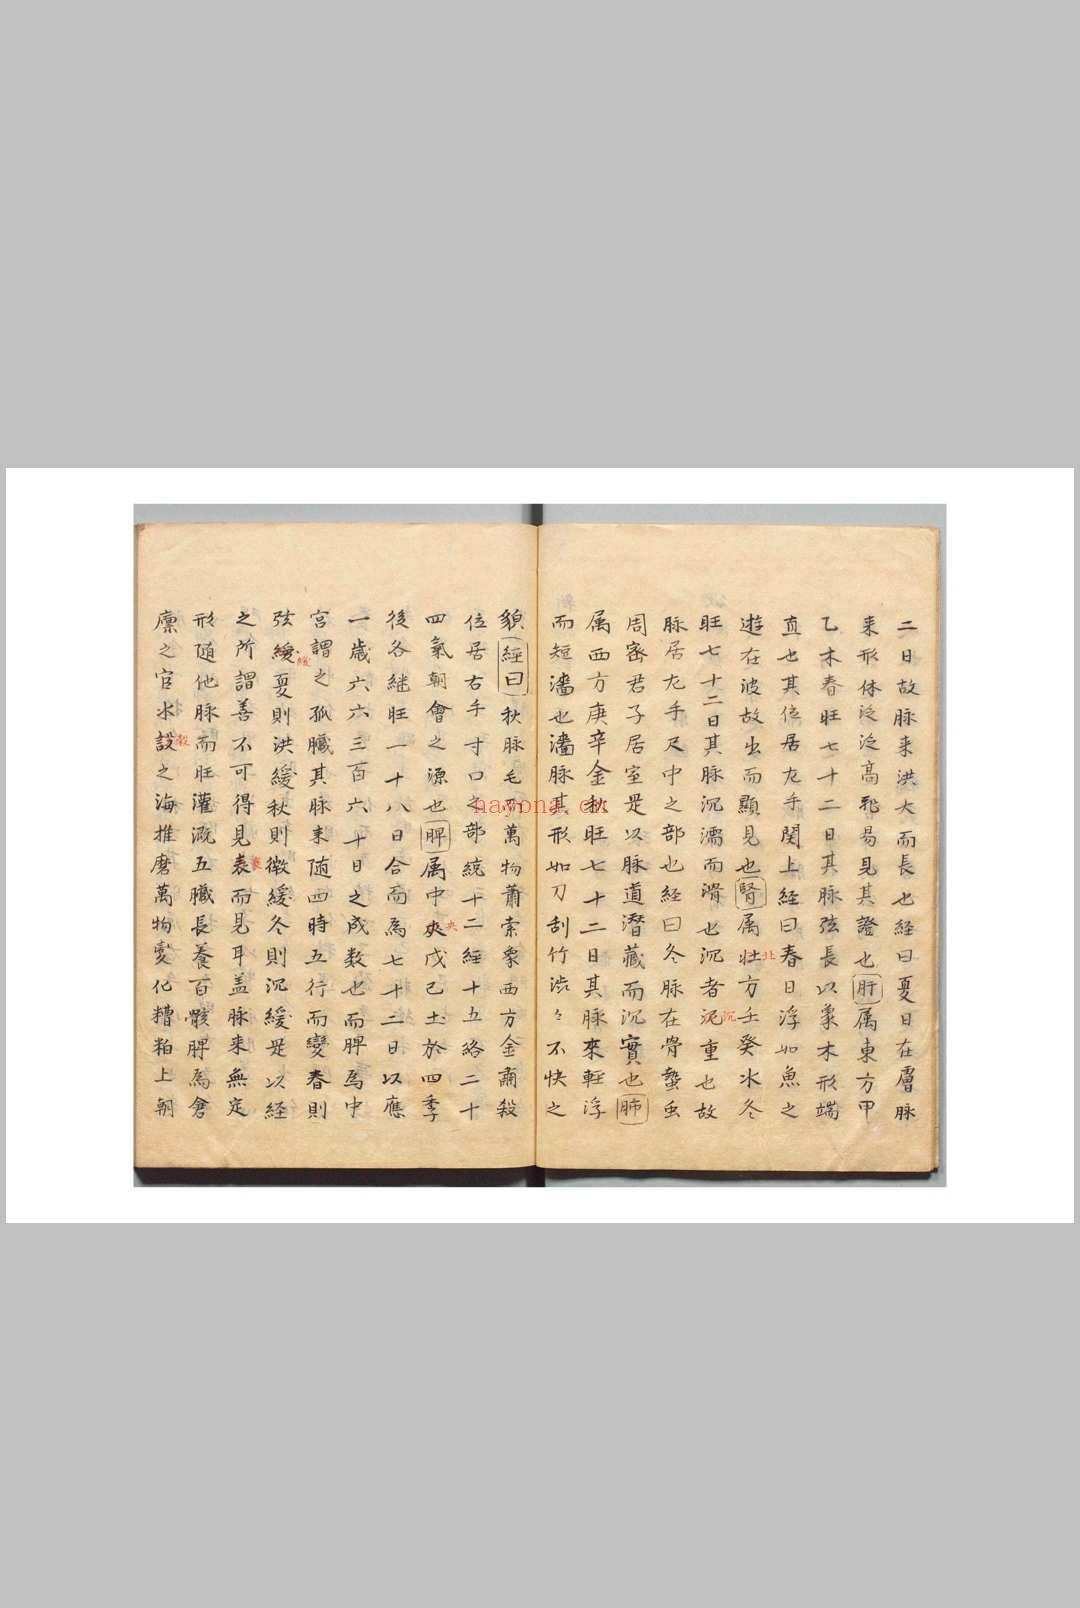 二日故脉来洪大而長也経曰夏日在膚脉
来形体泛泛高飛易見其證也肝属東方甲
乙木春旺七十二日其脉弦長以象木形端
直也其位居左手関上経曰春日浮如魚之
遊在波故出而顯見也腎属壮方壬癸水冬
北
旺七十二日其脉沉濡而滑也沉者泥重也故
沉
脉居左手尺中之部也経曰冬脉在骨蟄虫
周密君子居室是以脉道潜藏而沉實也肺
属西方庚辛金秋旺七十二日其脉來輕浮
而短濇也濇脉其形如刀刮竹渋々不快之
貌経曰秋脉毛而萬物蕭索象西方金肅殺
位居右手寸口之部統十二経十五絡二十
四氣朝會之源也脾属中夾戊己土於四季
央
後各継旺一十八日合而為七十二日以應
一歳六六三百六十日之成数也而脾為中
宮謂之孤臓其脉来随四時五行而變春則
弦緩夏則洪緩秋則微緩冬則沉緩是以経
緩
之所謂善不可得見表而見耳盖脉来無定
衰
形随他脉而旺灌溉五臓長養百骸脾為倉
廪之官水設之海推磨萬物變化糟粕上朝
穀
nayona.cn